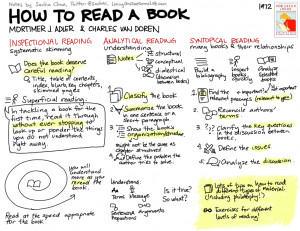 Notes by Sacha Chua, Twitter @sachac, LivingAnAwesomeLife.com
1972
HOW TO READ A BOOK
MORTIMER J. ADLER & CHARLES VAN DOREN
INSPECTIONAL READING
systematic skimming
Does the book deserve
careful reading?
Title, table of contents,
index, blurb, key chapters,
skimmed pages
Superficial reading:
In tackling a book for the
first time, read it through
without ever stopping to
look up or ponder the things
you do not understand
right away.
you will
understand
more as you
reread the
book
Read at the speed appropriate
for the book
ANALYTICAL READING
understanding
Notes
structural
conceptual
dialectical
(discussion between
books)
1. Classify the book
2. Summarize the book
in one sentence or a
short paragraph
3. Show the book's
organization/outline
might not be the same as
chapter structure!
4. Define the problem the
author tries to solve.
Understand
Terms
Sentences
Is it true?
So what?
SYNTOPICAL READING
many books & their relationships
Build a
bibliography
Inspect
books
Analyze
selected
books
1. Find the important/
relevant passages
2. Translate authors'
terms
3. Clarify the key questions
in the discussion between
books
4. Define the issues
5. Analyze the discussion
Lots of tips on how to read
different types of material
(including philosophy!)
Exercises for different
levels of reading!